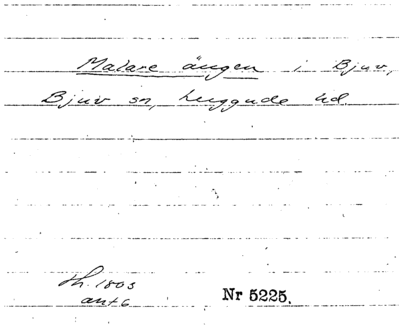 Malare ängen i Bjuv,
Bjuv sn, Luggude hd
th. 1803
ant 6
Nr 5225.